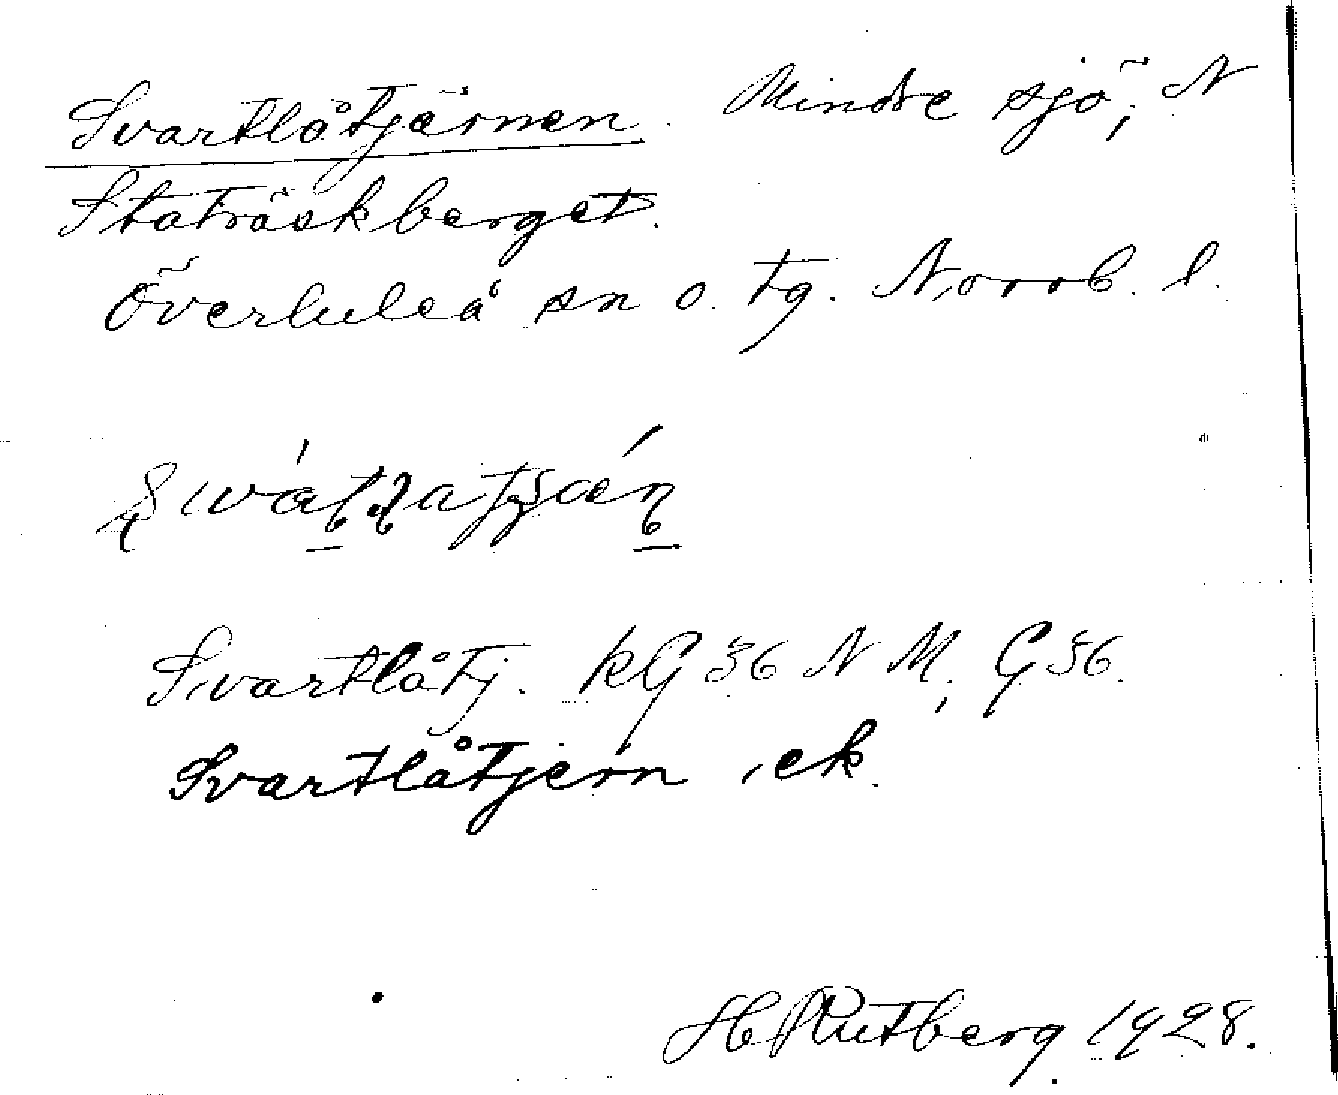 Svartlåtjärnen. Mindre sjö, N
Staträskberget.
Överluleå sn o. tg. Norrb. l.
Svartlåtj. kG 36 N M, G 36.
Svartlåtjern, ek.
H Rutberg 1928.